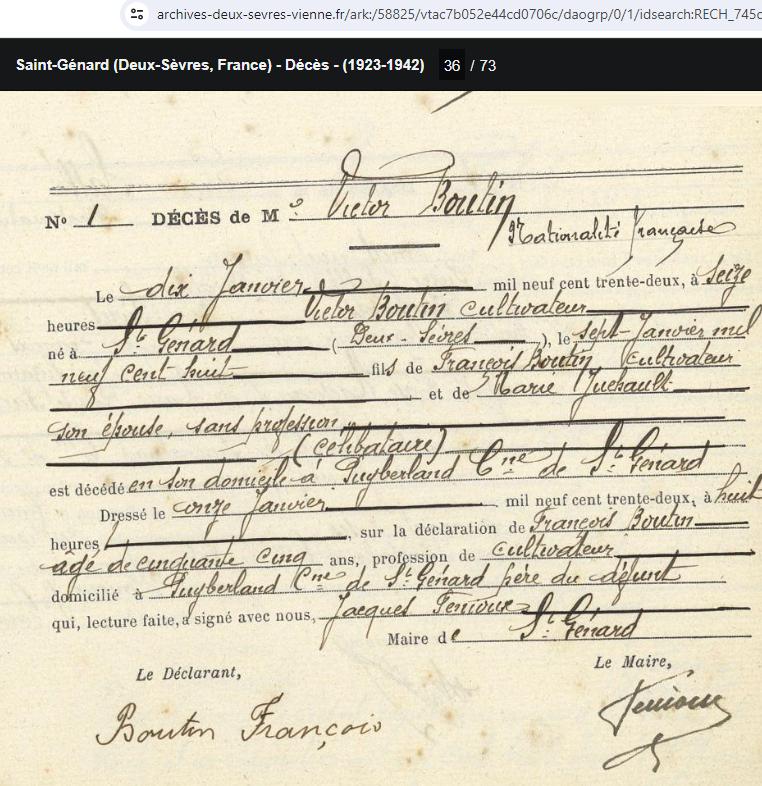 archives-deux-sevres-vienne.fr/ark:/58825/vtac7b052e44cd0706c/daogrp/0/1/idsearch:RECH_745c
Saint-Génard (Deux-Sèvres, France) - Décès - (1923-1942) 36 / 73
N° 1 DÉCÈS de M. Victor Boutin
Nationalité française
Le dix Janvier mil neuf cent trente-deux, à seize
heures Victor Boutin cultivateur
né à St Génard (Deux-Sèvres), le sept Janvier mil
neuf cent huit fils de François Boutin cultivateur
et de Marie
son épouse, sans profession
(célibataire)
est décédé en son domicile à Puyberland Cne de St Génard
Dressé le onze Janvier mil neuf cent trente-deux, à huit
heures , sur la déclaration de François Boutin
âgé de cinquante cinq ans, profession de cultivateur
domicilié à Puyberland Cne de St Génard père du défunt
qui, lecture faite, a signé avec nous, Jacques
Maire de St Génard
Le Déclarant, Le Maire,
Boutin François